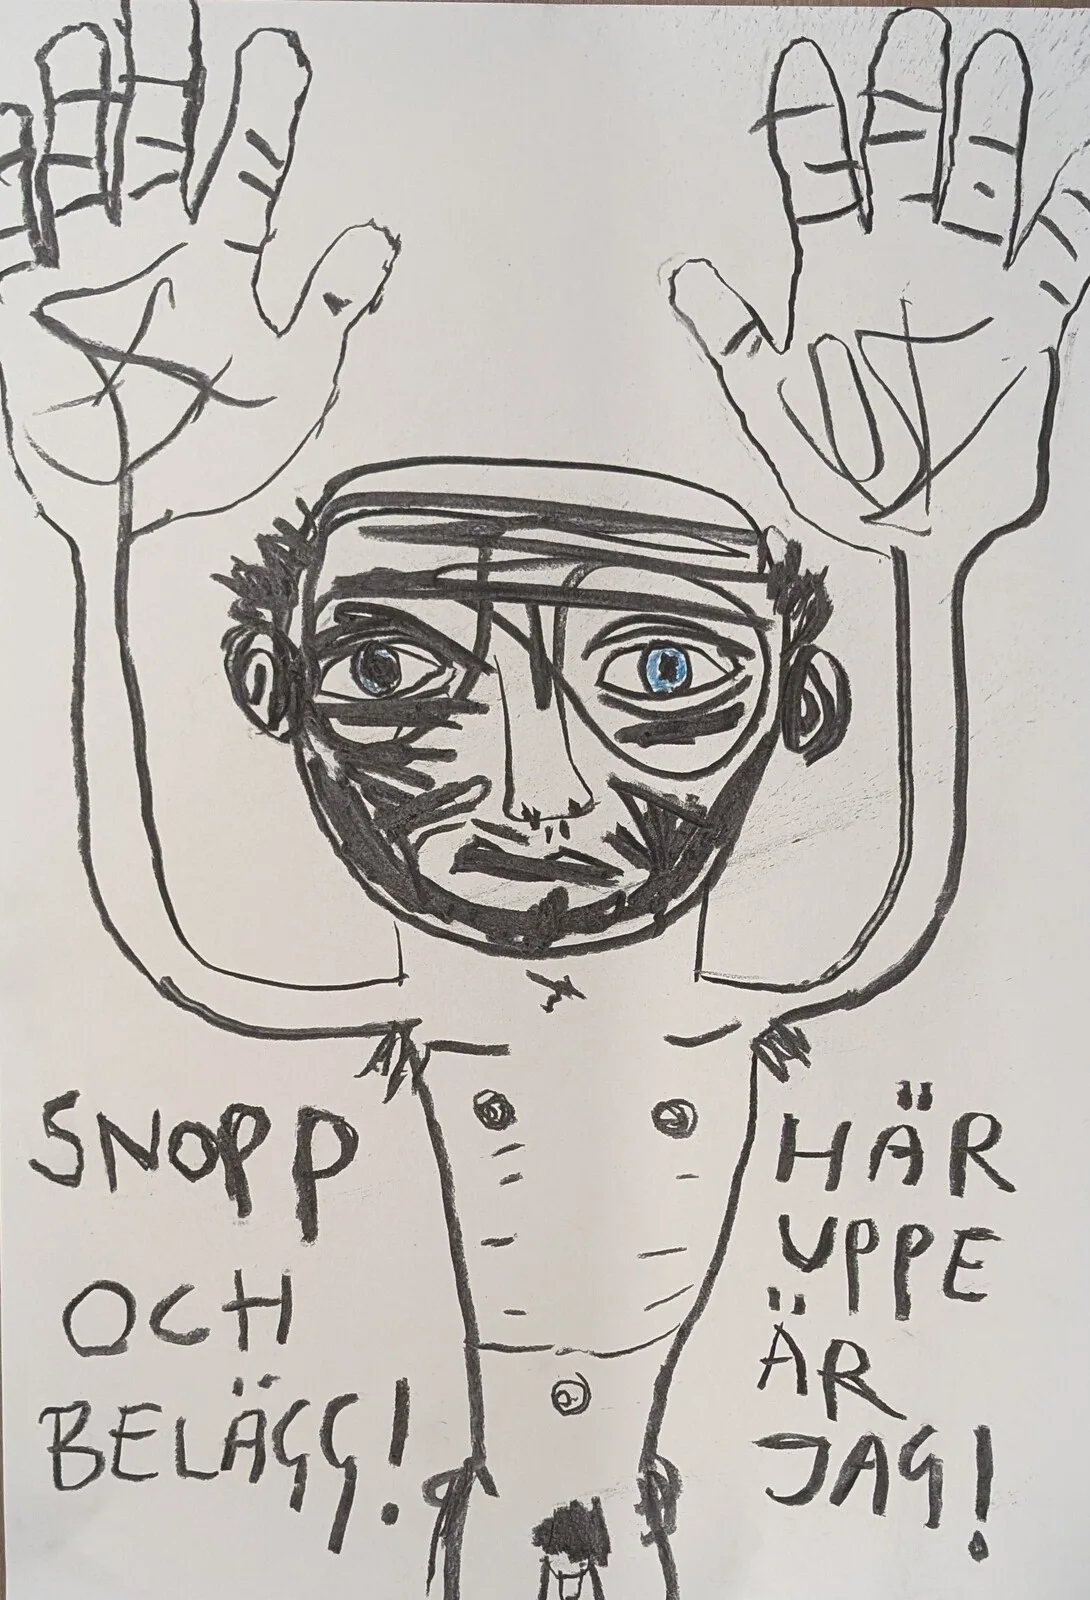 SNOPP
OCH
BELÄGG!
HÄR
UPPE
ÄR
JAG!